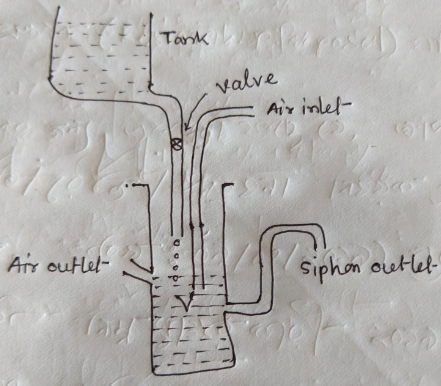 Tank
valve
Air inlet
Air outlet
Siphon outlet